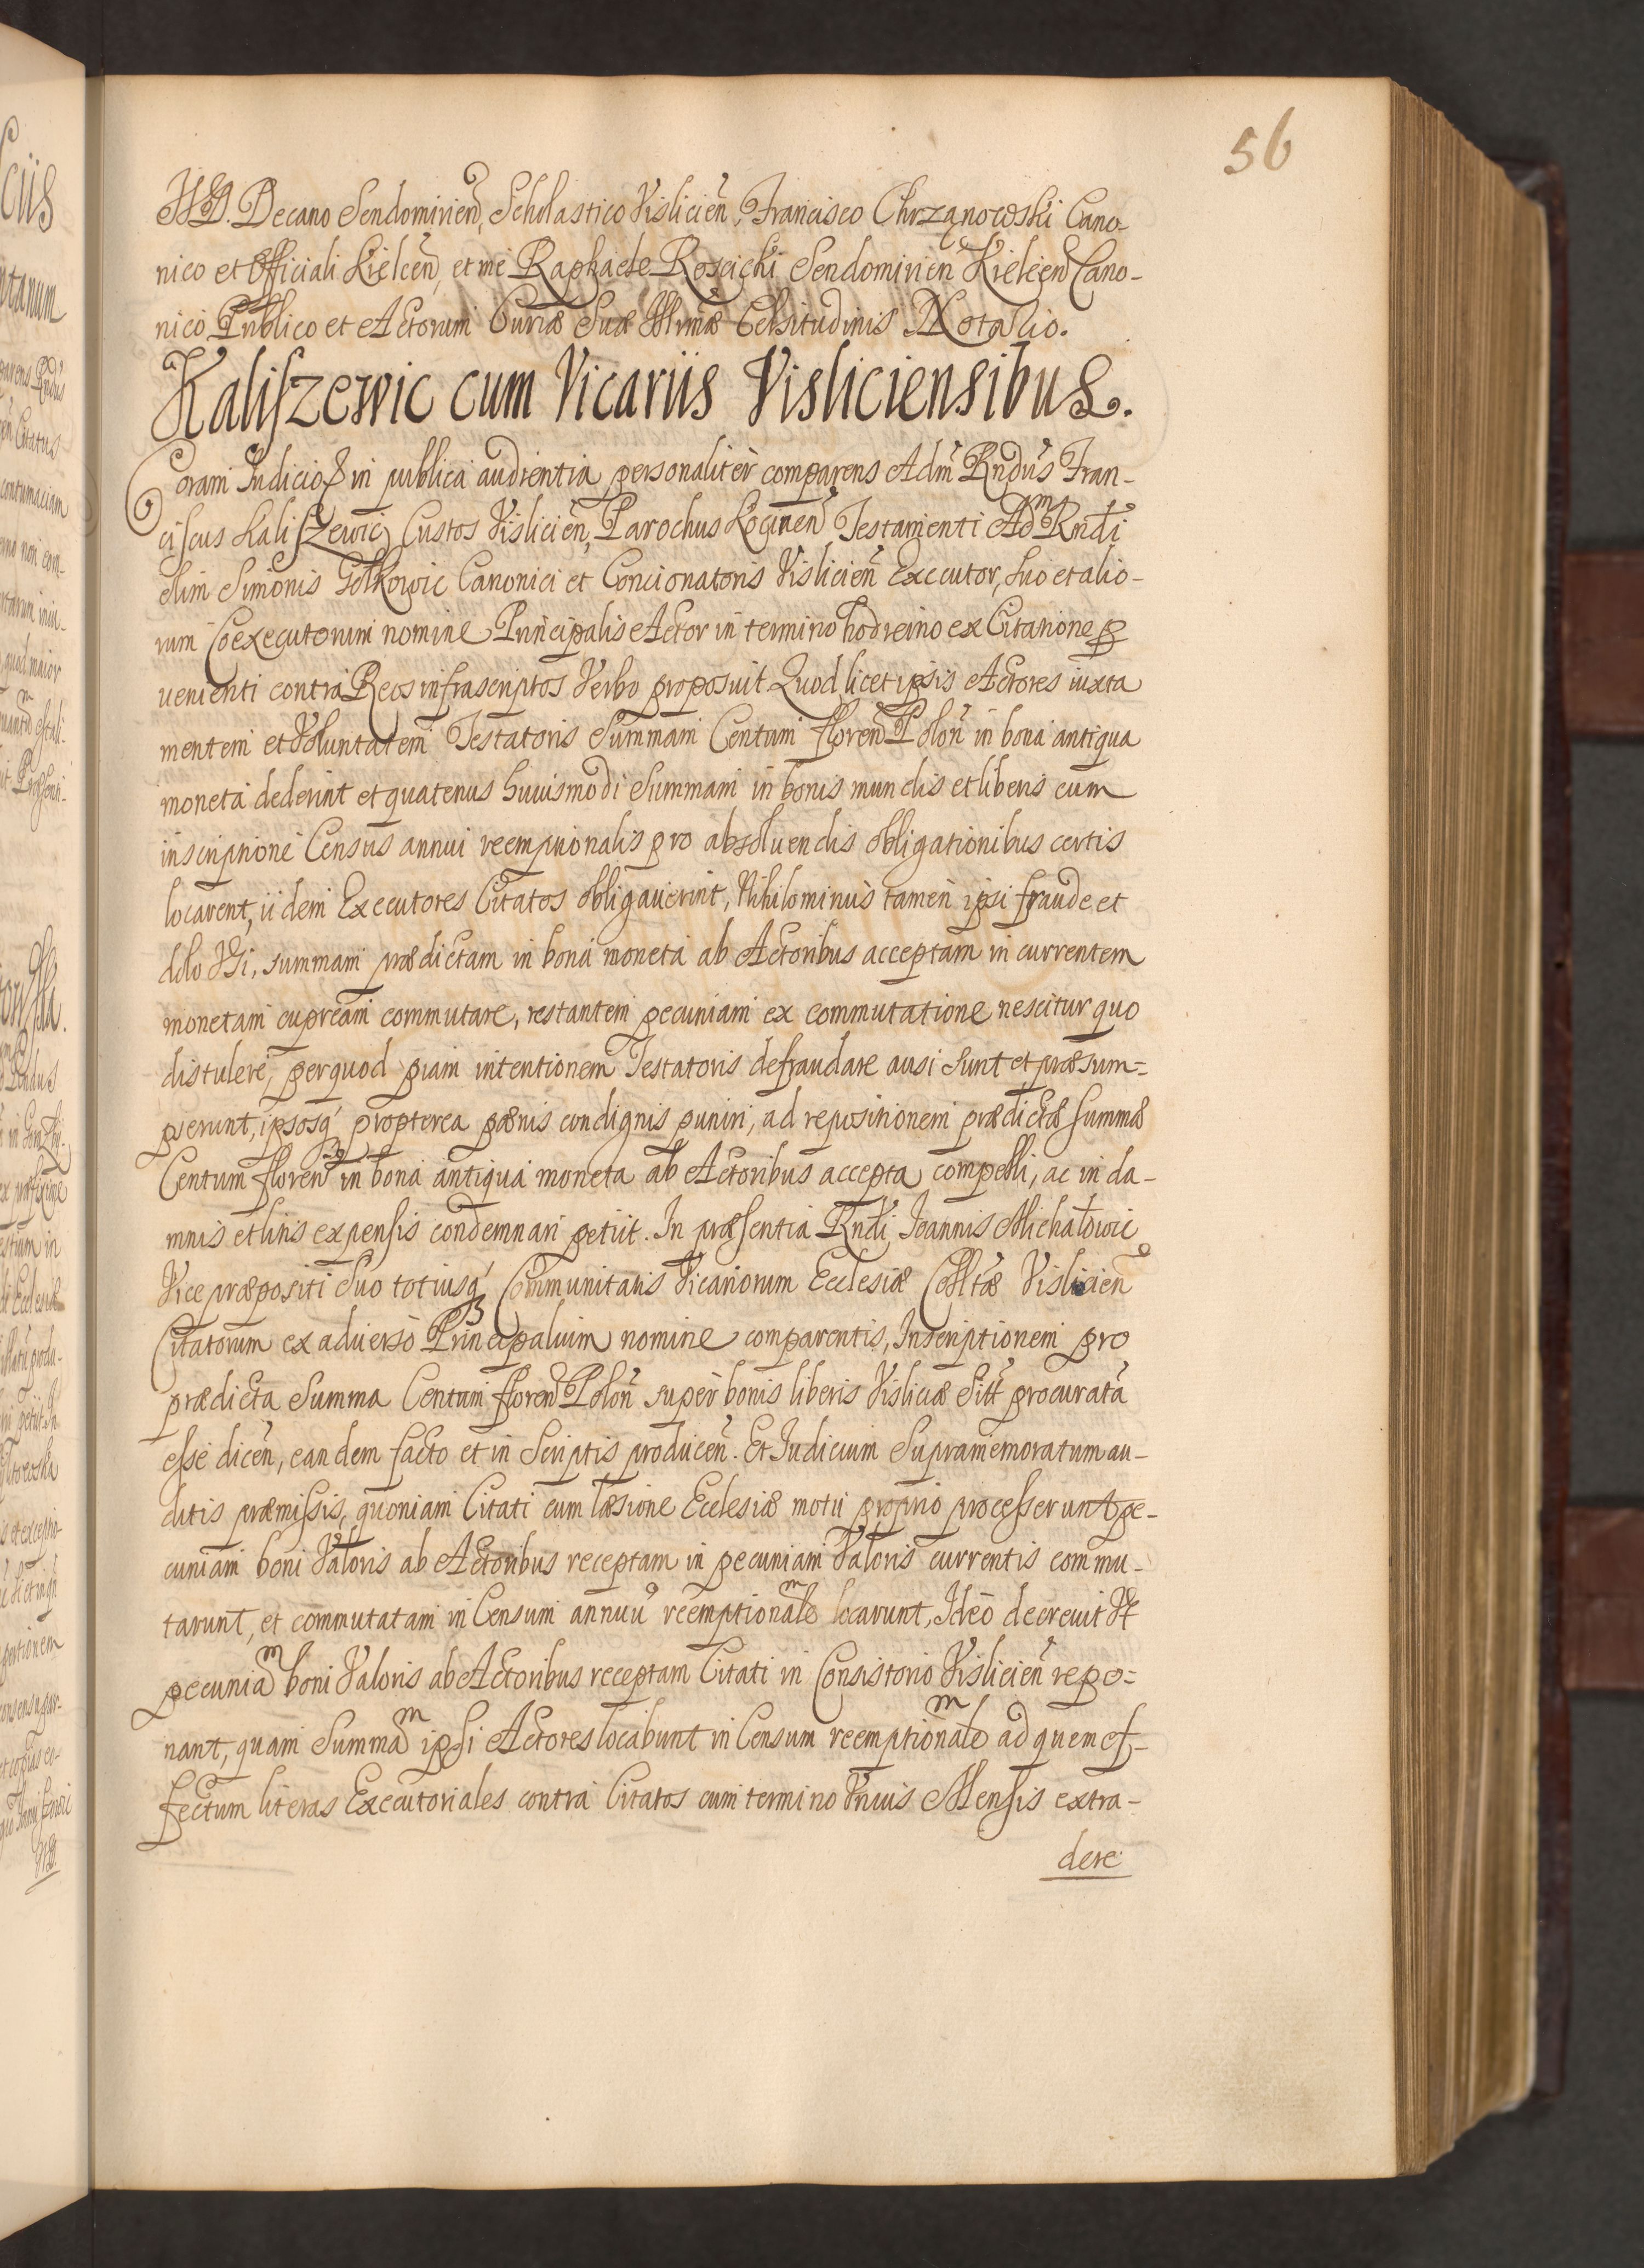 56
JJ.DD. Decano Sendomirien, Scholastico Vislicien, Francisco Chrząnowski Cano-
nico et Officiali Kielcen, et me Raphaele Roscicki Sendomirien Kielcen Cano-
nico Publico et Actorum Curiæ Suæ Illrmæ Celsitudinis Notario.
Kaliszewic cum Vicariis Visliciensibus.
Coram Judicio & in publica audientia personaliter comparens Adm Rndus Fran-
ciscus Kaliszewic Custos Vislicien, Parochus Testamenti Adm Rndi
olim Simonis Golkowic Canonici et Concionatoris Vislicien Executor, suo et alio-
rum Coexecutorum nomine Principalis Actor in termino hodierno ex Citatione p
uenienti contra Reos infrascriptos Verbo proposuit. Quod licet ipsis Actores iuxta
mentem et Voluntatem Testatoris Summam Centum floren Polon in bona antiqua
moneta dederint et quatenus huiusmodi Summam in bonis mundis et liberis cum
inscriptione Census annui reemptionalis pro absoluendis obligationibus certis
locarent, iidem Executores Citatos obligauerint, Nihilominus tamen ipsi fraude et
dolo Vsi, summam prædictam in bona moneta ab Actoribus acceptam in currentem
monetam cupream commutare, restantem pecuniam ex commutatione nescitur quo
distulere, per quod piam intentionem Testatoris defraudare ausi sunt et præsum=
pserunt, ipsosq propterea pænis condignis puniri, ad repositionem prædictæ summæ
Centum floren in bona antiqua moneta ab Actoribus accepta compelli, ac in da-
mnis et litis expensis condemnari petiit. In præsentia Rndi Joannis Michałowic
Vice præpositi suo totiusq Communitatis Vicariorum Ecclesiæ Colltæ Vislicien
Citatorum ex aduerso Principaluim nomine comparentis, Inscriptionem pro
prædicta Summa Centum floren Polon super bonis liberis Visliciæ Sitt procurata
esse dicen, eandem facto et in Scriptis producen. Et Judicium Supramemoratum au-
ditis præmissis, quoniam Citati cum læsione Ecclesiæ motu proprio processerunt pe-
cuniam boni Valoris ab Actoribus receptam in pecuniam Valoris currentis commu-
tarunt, et commutatam in Censum annuu reemptionalem locarunt, Ideo decreuit Vt
pecuniam boni Valoris ab Actoribus receptam Citati in Consistorio Vislicien repo=
nant, quam Summam ipsi Actores locabunt in Censum reemptionalem ad quem ef-
fectum literas Executoriales contra Citatos cum termino Vnius Mensis extra-
dere